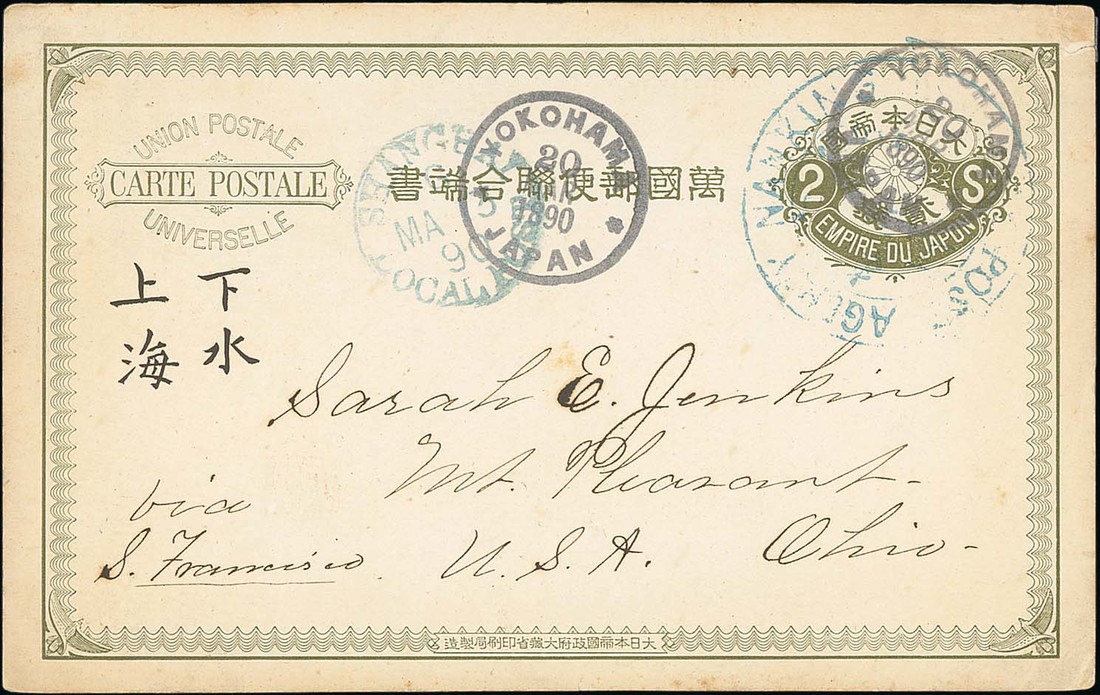 UNION POSTALE
CARTE POSTALE
UNIVERSELLE
書端合聯便郵國萬
大日本帝國
2 Sⁿ
EMPIRE DU JAPON
YOKOHAMA
20
1890
JAPAN
SHANGHAI
MA
90
LOCAL
YOKOHAMA
NANKIN
AGENCY
POS
下水
上海
Sarah E. Jenkins
Mt. Pleasant-
via Ohio-
S. Francisco U.S.A.
造製局刷印省藏大府政國帝本日大